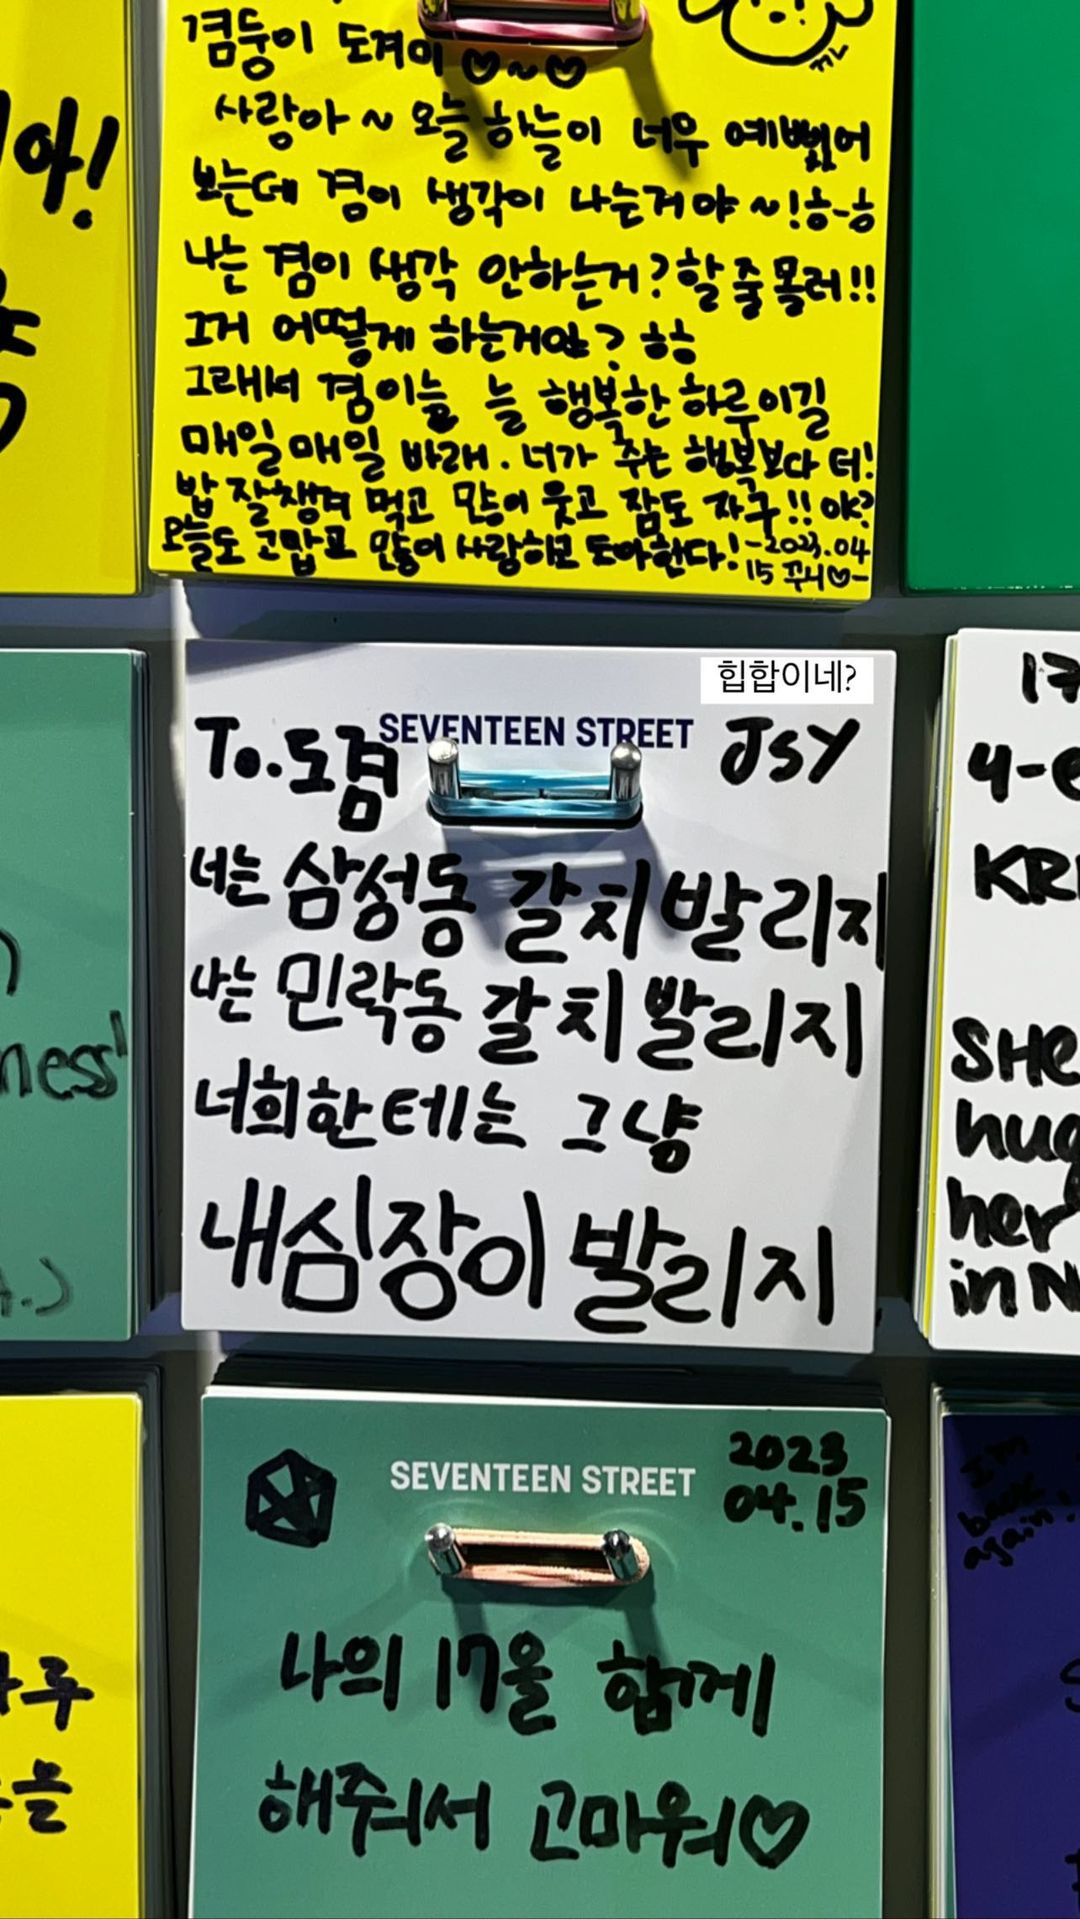 겸둥이 도겨미 ♡~♡
사랑아 ~ 오늘 하늘이 너무 예뻤어
보는데 겸이 생각이 나는거야 ~! ㅎ-ㅎ
나는 겸이 생각 안하는거? 할 줄 몰러!!
그거 어떻게 하는거야? ㅎㅎ
그래서 겸이늘 늘 행복한 하루이길
매일매일 바래. 너가 주는 행복보다 더!
밥 잘챙겨 먹고 많이 웃고 잠도 자구!! OK?
오늘도 고맙고 많이 사랑하고 도아한다! -2023.04
15 꾸니♡-
이야!
힙합이네?
SEVENTEEN STREET
To.도겸
JSY
너는 삼성동 갈치발리지
나는 민락동 갈치발리지
너희한테는 그냥
내심장이 발리지
ness'
17
4-
KR
SHE
hug
her
in N
SEVENTEEN STREET
2023
04.15
나의 17을 함께
해줘서 고마워♡
루
을
I'm
back
again!